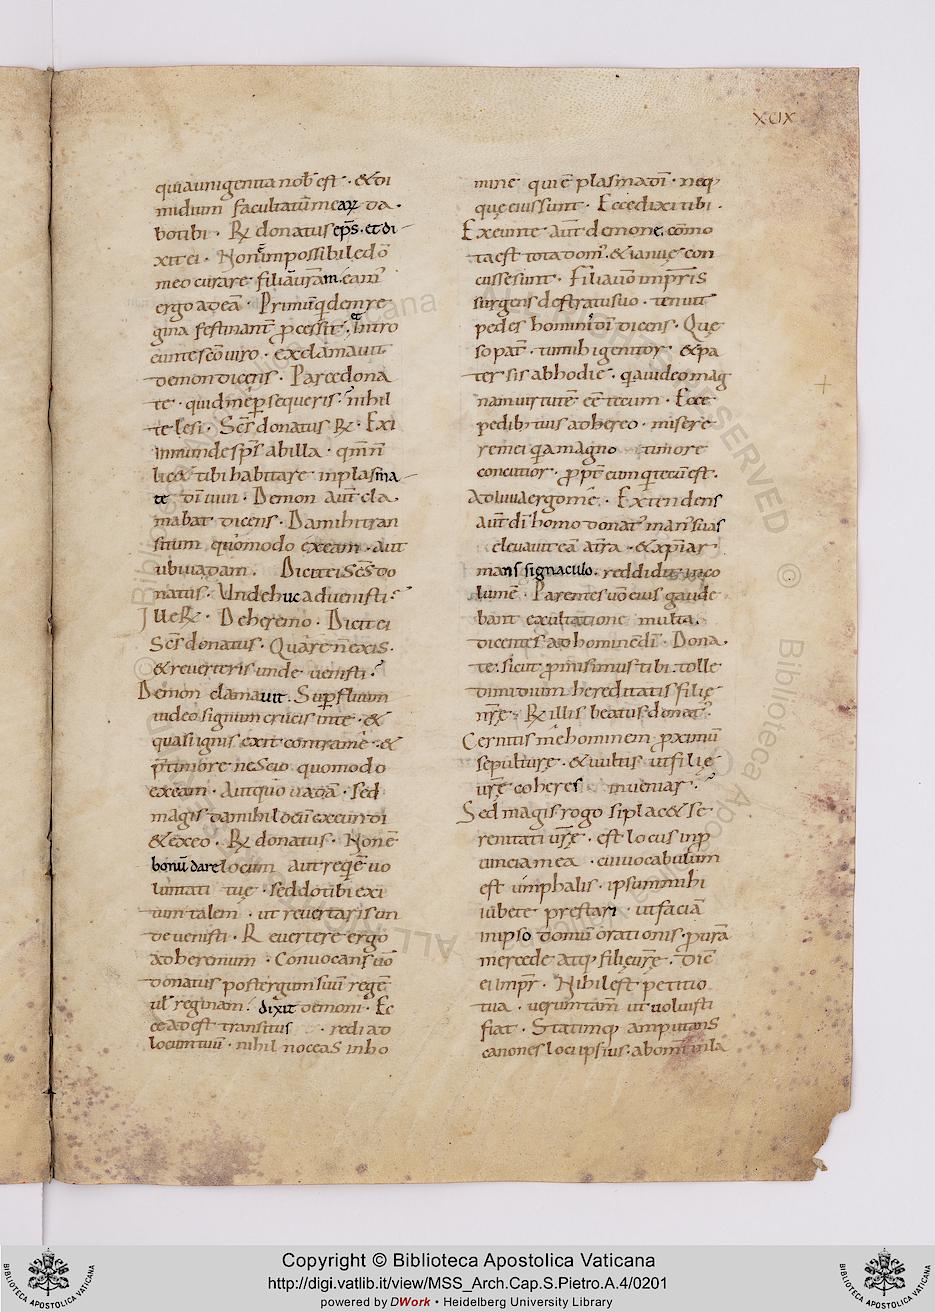 XCIX
quia unigenita nob̄ est · & di
midium facultatū mearꝝ da ·
bo tibi · R̵ donatus ep̄s · et di
xit ei · Non ē impossibile dō
meo curare filiā urām · eam̄
ergo ad eā · Primūq; dem re
gina festinant̄ p̄cessit · et Intro
eunte sc̄o uiro · exclamauit
demon dicens · Parce dona
te · quid mē ꝑsequeris · nihil
te lesi · Sc̄s donatus R̵ · Exi
inmunde sp̄s ab illa · qm̄ n̄
lic& tibi habitare in plasma
te dī uiui · Demon aut̄ cla
mabat dicens · Da mihi tran
situm quomodo exeam · aut
ubi uadam · Dicit ei Sc̄s do
natus · Unde huc aduenisti ·
Ille R̵ · De heremo · Dicit ei
Sc̄s donatus · Quare n̄ exis ·
& reuerteris unde uenisti ·
Demon clamauit · Supfluum
uideo signum crucis in te · &
quasi ignis exit contra mē · &
p̄ timore nescio quomodo
exeam · Aut quo uadā · Sed
magis da mihi locū exeundi
& exeo · R̵ donatus · Non ē
bonū dare locum aut reqē uo
luntati tuę · sed do tibi exi
tum talem · ut reuertaris un
de uenisti · Reuertere ergo
ad heremum · Conuocans uō
donatus post tergum suū regē
ul̄ reginam · dixit demoni · Ec
ce adest transitus · redi ad
locum tuū · nihil noceas in ho
mine qui ē plasma dī · neq;
quę eius sunt · Ecce dixi tibi ·
Exeunte aut̄ demone, cōmo
ta est tota dom' · & ianuę con
cussę sunt · Filia uō imp̄ris
surgens de stratu suo · tenuit
pedes homini dī dicens · Que
so pat̄ · tu mihi genitor · & pa
ter sis ab hodie · qa uideo mag
nam uirtutē ēē tecum · Ecce
pedib; tuis adhereo · miserē
re mei qa magno timore
concutior · ꝓpt̄ eum qui tecū est ·
Adiuua ergo mē · Extendens
aut̄ dī homo donat' man' suas
eleuauit eā a t̄ra · & xp̄i ar
mans signaculo · reddidit in co
lumē · Parentes uō eius gaude
bant exultatione multa ·
dicentes ad hominē dī · Dona
te · sicut ꝓmisimus tibi · tolle
dimidium hereditatis filię
nr̄ę · R̵ illis beatus donat' ·
Cernitis mē hominem ꝓximū
sepulturę · & uultis ut filię
ur̄ę coheres inueniar ·
Sed magis rogo si plac& se
renitati ur̄ę · est locus in p
uincia mea · cui uocabulum
est ūmphalis · ipsum mihi
iubete prestari · ut faciā
in ipso domū orationis · p ura
mercede atq; filię ur̄ę · Dic̄
ei imp̄r · Nihil est petitio
tua · uerumtam̄ ut uoluisti
fiat · Statimq; amputans
canones loci ipsius · ab om̄i in la
Copyright © Biblioteca Apostolica Vaticana
http://digi.vatlib.it/view/MSS_Arch.Cap.S.Pietro.A.4/0201
powered by DWork • Heidelberg University Library